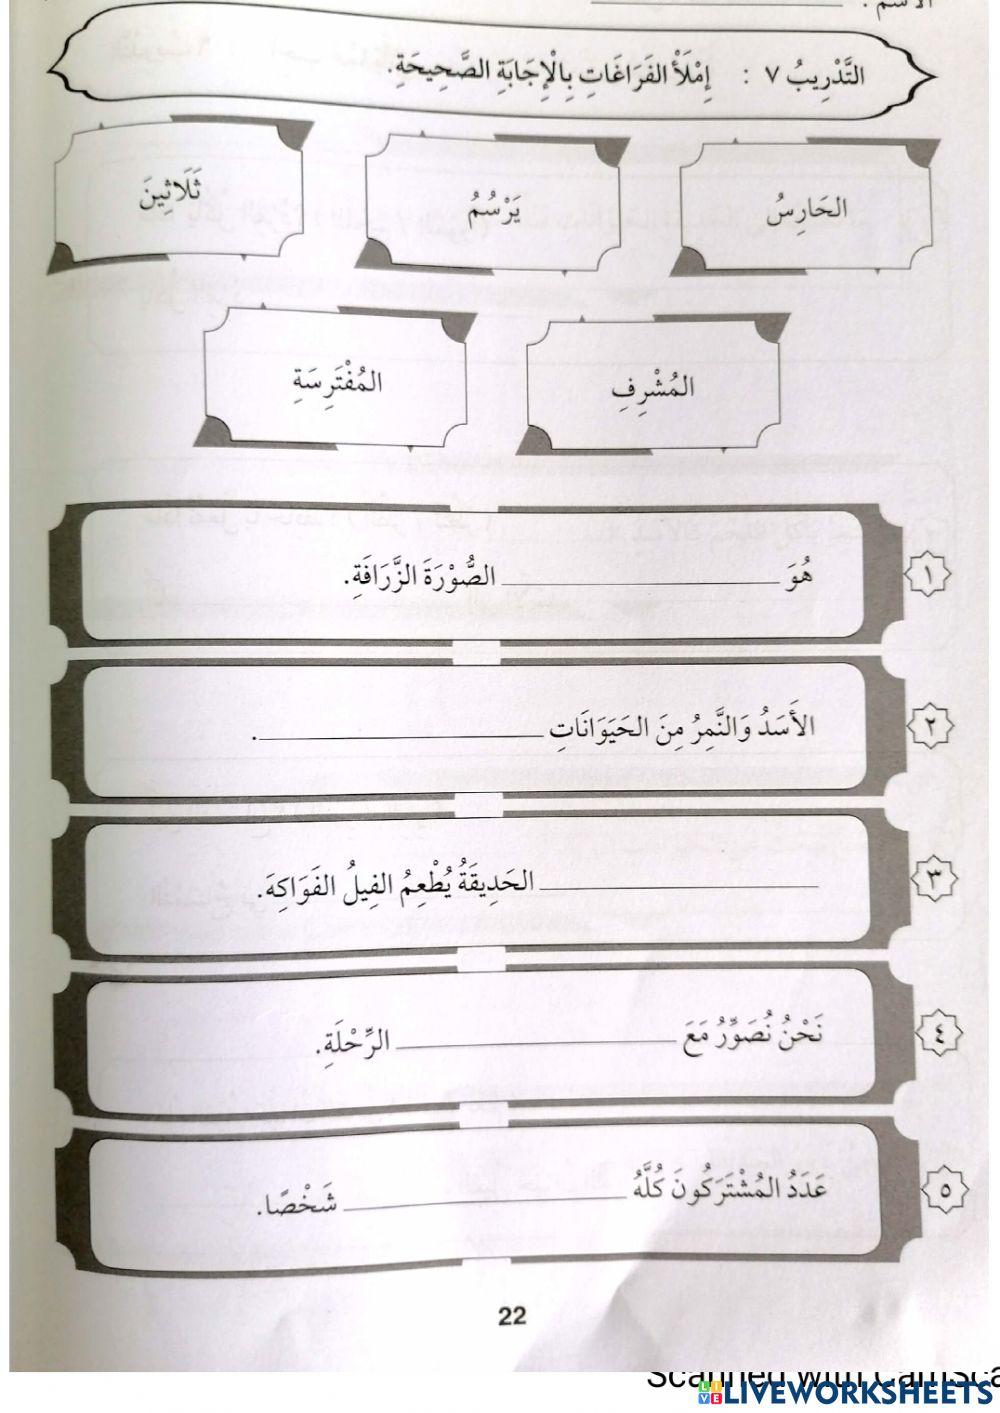 الاسم :
التَّدْرِيبُ ٧ : إِمْلَأْ الفَرَاغَاتِ بِالْإِجَابَةِ الصَّحِيحَةِ.
الحَارِسُ
يَرْسُمُ
ثَلَاثِينَ
المُشْرِفِ
المُفْتَرِسَةِ
١ هُوَ ____________ الصُّوْرَةَ الزَّرَافَةِ.
٢ الأَسَدُ وَالنَّمِرُ مِنَ الحَيَوَانَاتِ ____________.
٣ ____________ الحَدِيقَةُ يُطْعِمُ الفِيلُ الفَوَاكِهَ.
٤ نَحْنُ نُصَوِّرُ مَعَ ____________ الرِّحْلَةِ.
٥ عَدَدُ المُشْتَرَكُونَ كُلَّهُ ____________ شَخْصًا.
22
Scanned with CamSca
LIVEWORKSHEETS